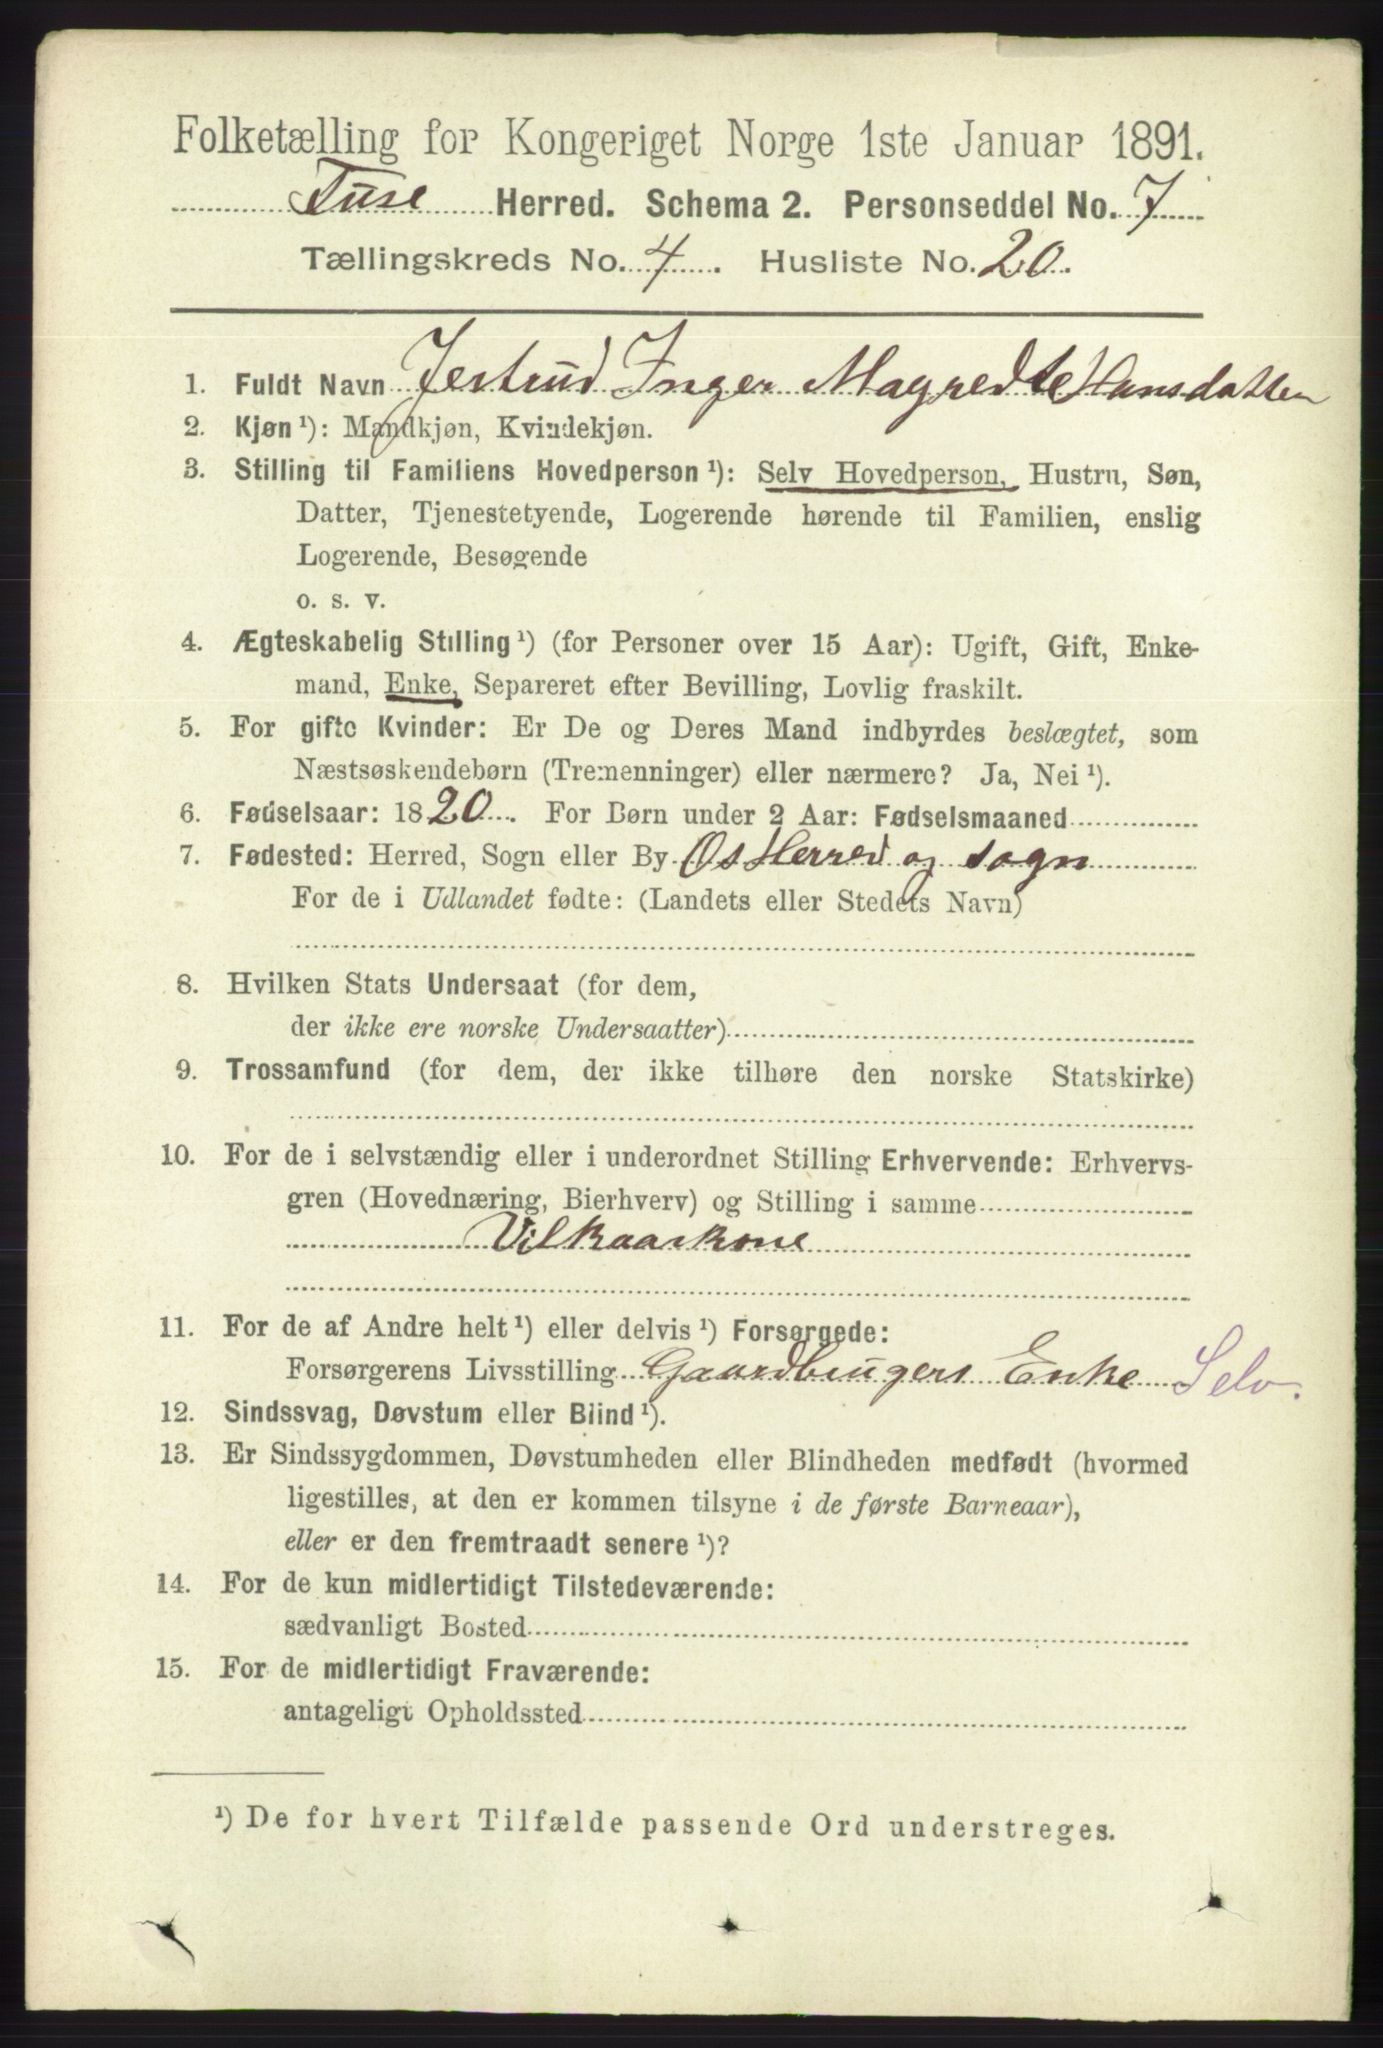 Folketælling for Kongeriget Norge 1ste Januar 1891.
Fuse Herred. Schema 2. Personseddel No. 7
Tællingskreds No. 4. Husliste No. 20.
1. Fuldt Navn Jertrud Inger Magredte Hansdatter
2. Kjøn ¹): Mandkjøn, Kvindekjøn.
3. Stilling til Familiens Hovedperson ¹): Selv Hovedperson, Hustru, Søn,
Datter, Tjenestetyende, Logerende hørende til Familien, enslig
Logerende, Besøgende
o. s. v.
4. Ægteskabelig Stilling ¹) (for Personer over 15 Aar): Ugift, Gift, Enke-
mand, Enke, Separeret efter Bevilling, Lovlig fraskilt.
5. For gifte Kvinder: Er De og Deres Mand indbyrdes beslægtet, som
Næstsøskendebørn (Tremenninger) eller nærmere? Ja, Nei ¹).
6. Fødselsaar: 1820. For Børn under 2 Aar: Fødselsmaaned
7. Fødested: Herred, Sogn eller By Os Herred og sogn
For de i Udlandet fødte: (Landets eller Stedets Navn)
8. Hvilken Stats Undersaat (for dem,
der ikke ere norske Undersaatter)
9. Trossamfund (for dem, der ikke tilhøre den norske Statskirke)
10. For de i selvstændig eller i underordnet Stilling Erhvervende: Erhvervs-
gren (Hovednæring, Bierhverv) og Stilling i samme
Vilkaarkone
11. For de af Andre helt ¹) eller delvis ¹) Forsørgede:
Forsørgerens Livsstilling Gaardbrugers Enke Selv.
12. Sindssvag, Døvstum eller Blind ¹).
13. Er Sindssygdommen, Døvstumheden eller Blindheden medfødt (hvormed
ligestilles, at den er kommen tilsyne i de første Barneaar),
eller er den fremtraadt senere ¹)?
14. For de kun midlertidigt Tilstedeværende:
sædvanligt Bosted
15. For de midlertidigt Fraværende:
antageligt Opholdssted
¹) De for hvert Tilfælde passende Ord understreges.